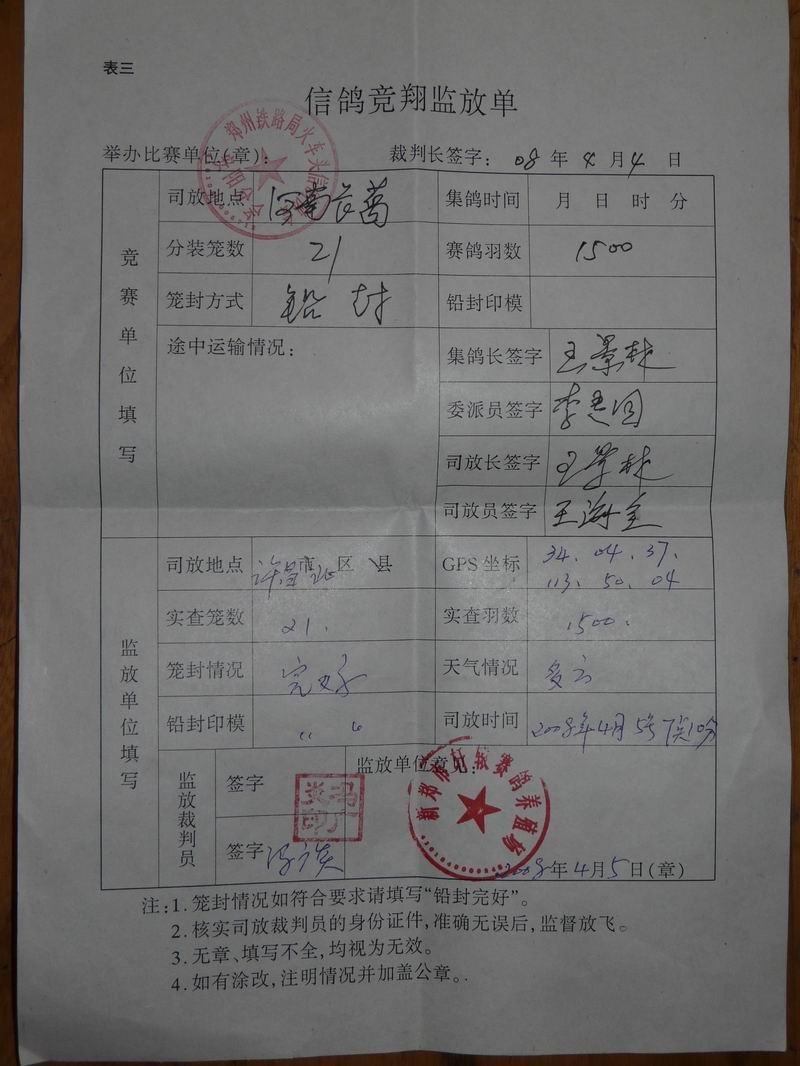 表三
信鸽竞翔监放单
举办比赛单位(章): 裁判长签字: 08 年 4 月 4 日
郑州铁路局火车头
竞赛单位填写
司放地点 河南长葛 集鸽时间 月 日 时 分
分装笼数 21 赛鸽羽数 1500
笼封方式 铅封 铅封印模
途中运输情况: 集鸽长签字 王景林
委派员签字
司放长签字 王景林
司放员签字 王海全
监放单位填写
司放地点 市 区 县 GPS坐标 34.04.37.
113.50.04
实查笼数 21. 实查羽数 1500.
笼封情况 完好 天气情况 多云
铅封印模 司放时间 2008年4月5号7点10分
监放裁判员
签字 监放单位意见:
签字
赛鸽养殖场
2008年4月5日(章)
注:1. 笼封情况如符合要求请填写“铅封完好”。
2. 核实司放裁判员的身份证件,准确无误后,监督放飞。
3. 无章、填写不全,均视为无效。
4. 如有涂改,注明情况并加盖公章。.